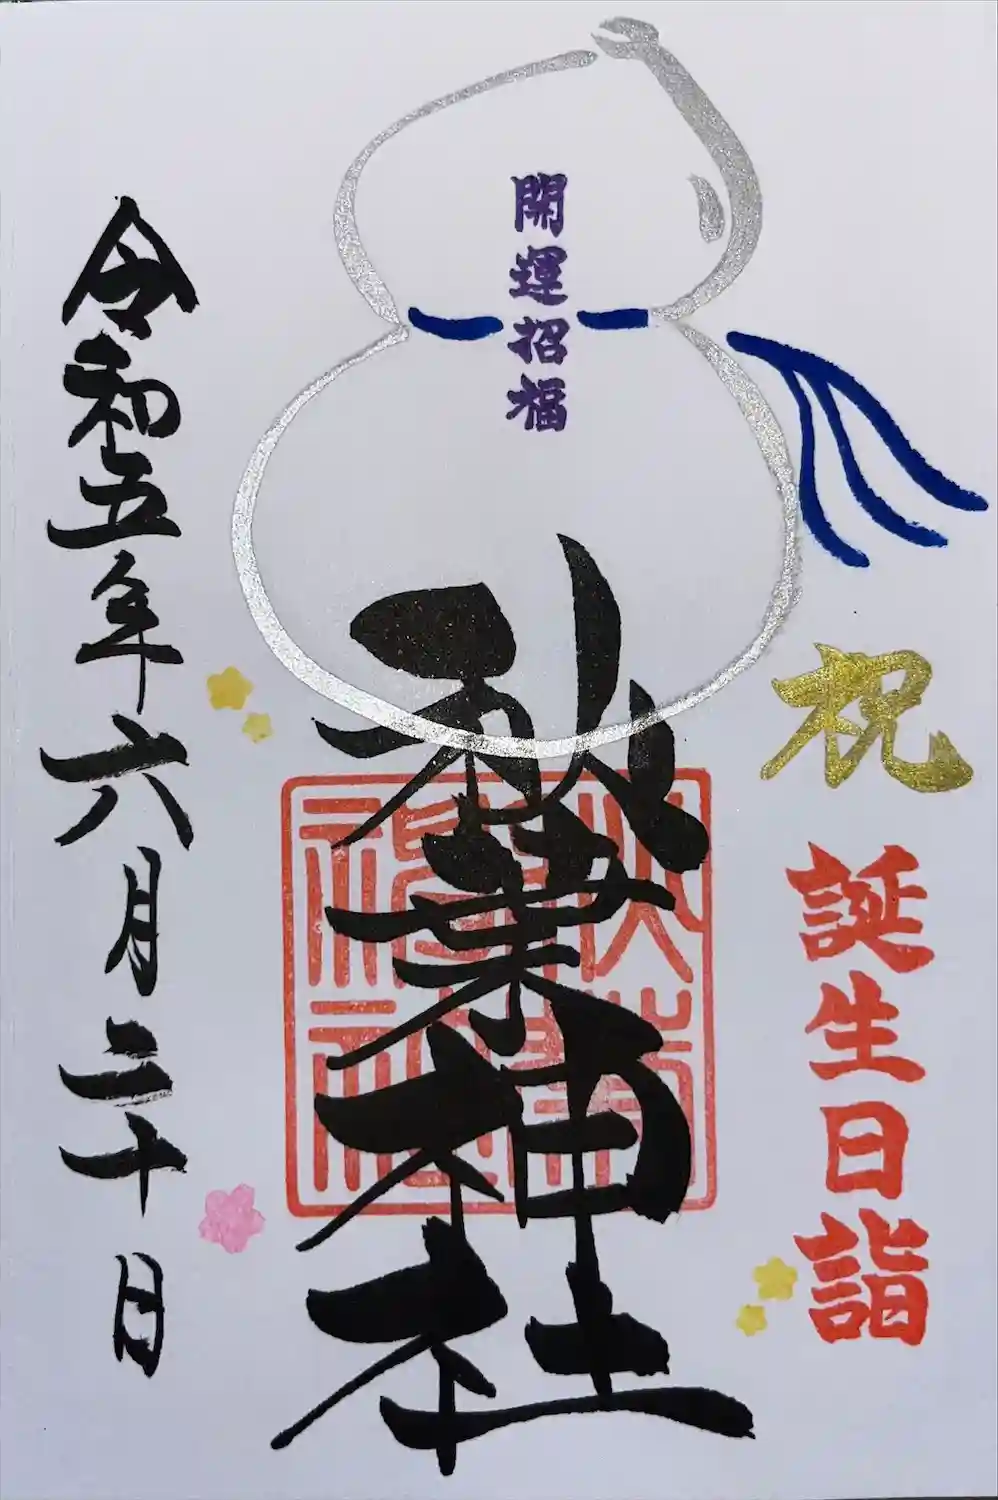 祝
誕生日詣
開運招福
秋葉神社
令和五年六月二十日